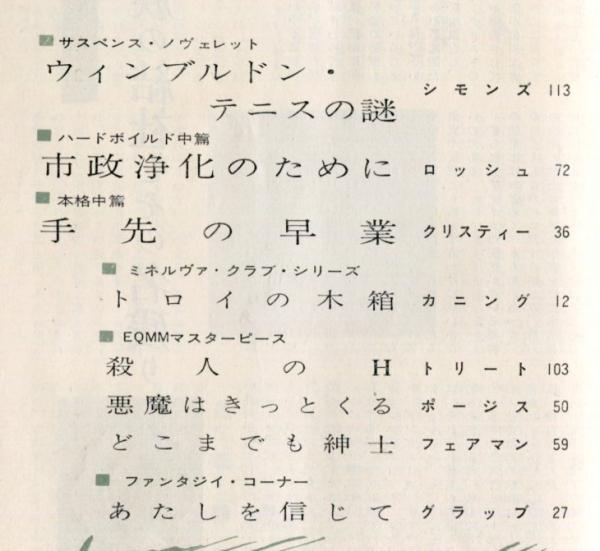 サスペンス・ノヴェレット
ウィンブルドン・
テニスの謎 シモンズ 113
ハードボイルド中篇
市政浄化のために ロッシュ 72
本格中篇
手先の早業 クリスティー 36
ミネルヴァ・クラブ・シリーズ
トロイの木箱 カニング 12
EQMMマスターピース
殺人のH トリート 103
悪魔はきっとくる ポージス 50
どこまでも紳士 フェアマン 59
ファンタジイ・コーナー
あたしを信じて グラップ 27